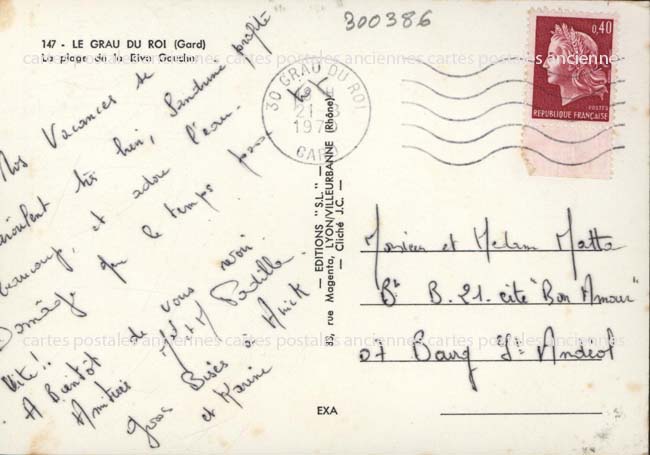 300386
147 - LE GRAU DU ROI (Gard)
La plage de la Rive Gauche
0,40
POSTES
REPUBLIQUE FRANÇAISE
30 GRAU DU ROI
21 - 8
GARD
Nos Vacances se
déroulent très bien, Sandrine profite
beaucoup, et adore l'eau.
Domâge que le temps passe
Vite!!
A Bientot de vous revoir.
Amitiés
gros Bises à Anick
et Karine
— EDITIONS "S.L." —
85, rue Magenta, LYON/VILLEURBANNE (Rhône)
— Cliché J.C. —
Monsieur et Madame Matta
Bt B. 21. cité "Bon Amour"
07 Bourg St Andéol
EXA
cartes postales anciennes cartes postales anciennes cartes postales anciennes
cartes postales anciennes cartes postales anciennes cartes postales anciennes